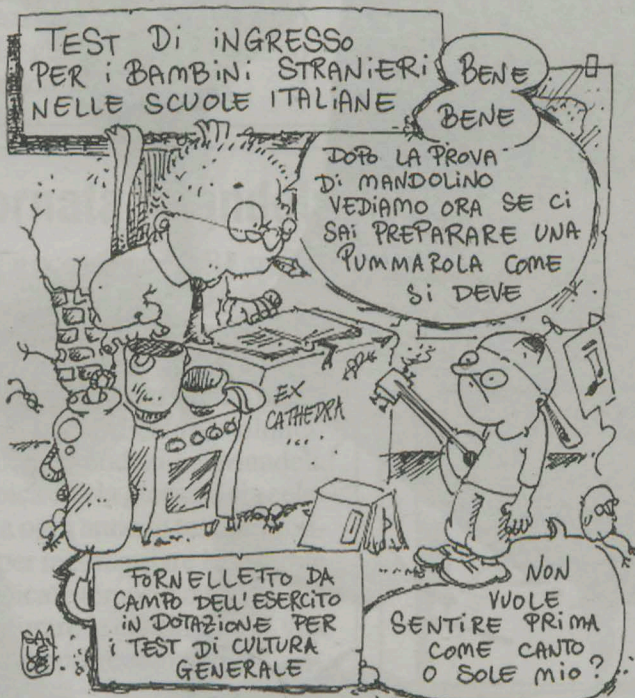 TEST Di iNGRESSO
PER i BAMBiNi STRANiERi
NELLE SCUOLE iTALiANE
BENE
BENE
DOPO LA PROVA
Di MANDOLiNO
VEDiAMO ORA SE Ci
SAi PREPARARE UNA
PUMMAROLA COME
Si DEVE
EX
CATHEDRA
...
FORNELLETTO DA
CAMPO DELL'ESERCiTO
iN DOTAZiONE PER
i TEST Di CULTURA
GENERALE
NON
VUOLE
SENTiRE PRiMA
COME CANTO
O SOLE MiO?